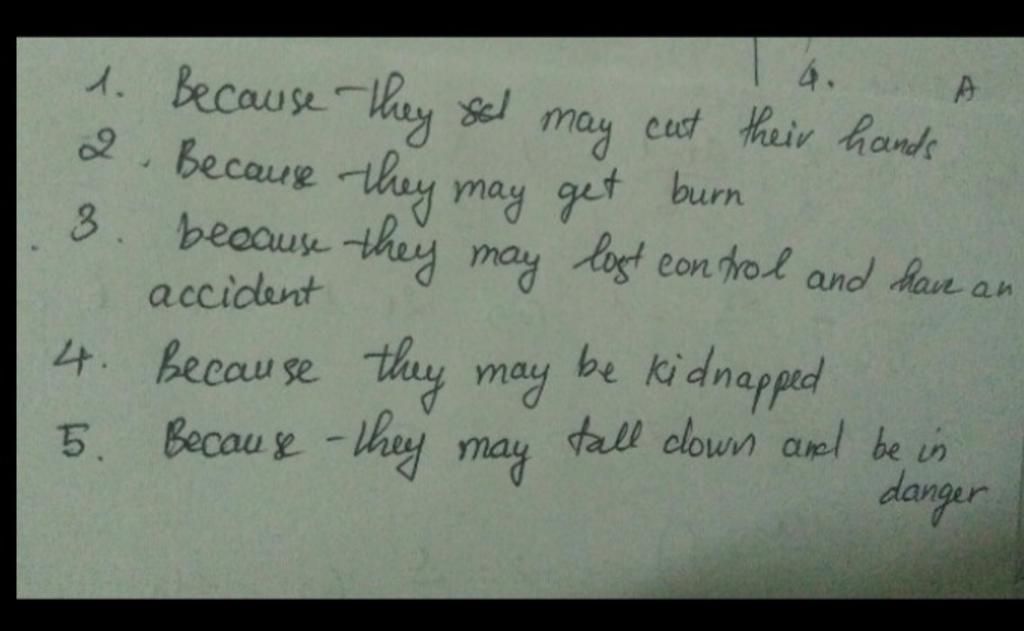 4. A
1. Because they may cut their hands
2. Because they may get burn
3. because they may lost control and have an
accident
4. Because they may be kidnapped
5. Because they may fall down and be in
danger